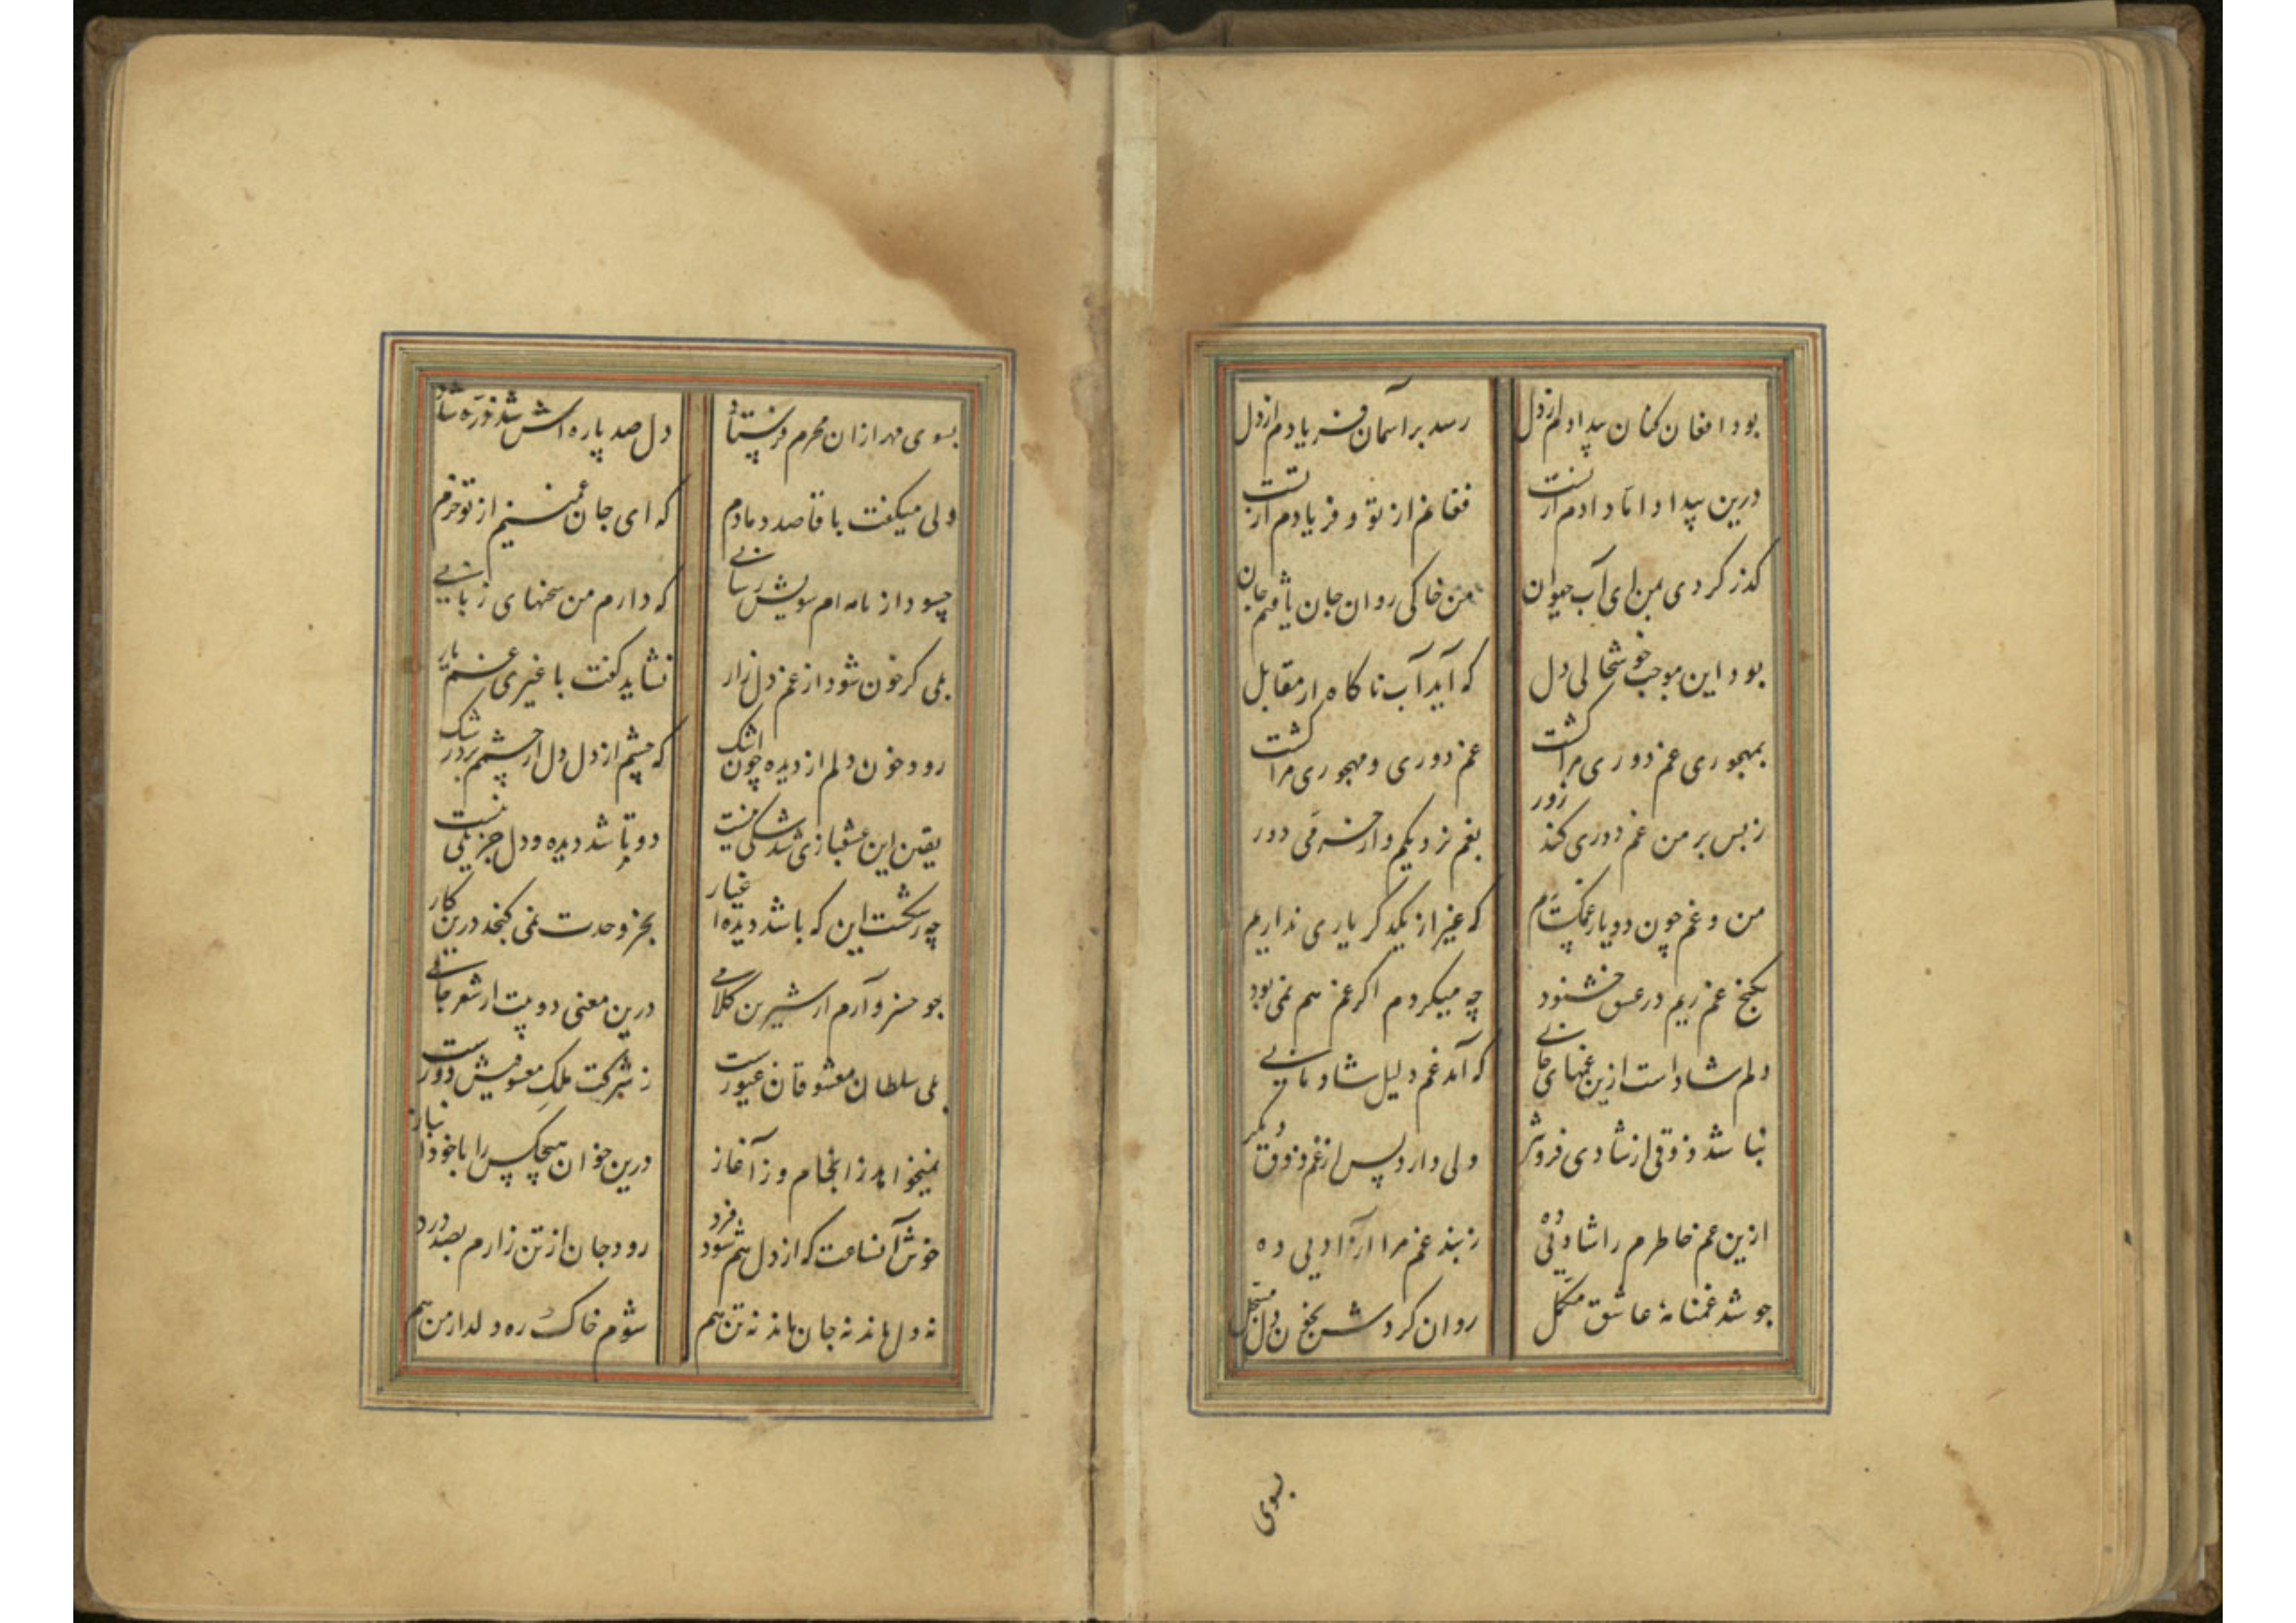 بود افغان کنان بیدادم از دل رسد بر آسمان فریادم از دل
درین بیدادها دادم ازتست فغانم از تو و فریادم ازتست
گذر کردی بمن ای آب حیوان من خاکی روان جان یافتم جان
بود این موجب خوشحالی دل که آید آب ناگاه از مقابل
بمهجوری غم دوری مرا کشت غم دوری و مهجوری مرا کشت
ز بس بر من غم دوری کند زور بغم نزدیکم و از خرمی دور
من و غم چون دو یار غمگساریم که غیر از یکدگر یاری نداریم
بکنج غم زیم در عشق خشنود چه میکردم اگر غم هم نمی بود
دلم شاد است ازین غمهای جانی که آمد غم دلیل شادمانی
نباشد ذوقی از شادی فزونتر ولی دارد پس از غم ذوق دیگر
ازین غم خاطرم را شادیی ده ز بند غم مرا آزادیی ده
چو شد غمنامهٔ عاشق مکمل روان کردش بخون دل مسجل
بسوی
بسوی مهر ازان محرم فرستاد دل صد پاره اش شد ذره شاد
ولی میگفت با قاصد دمادم که ای جان غمینم از تو خرم
چسود از نامه ام سویش رسانی که دارم من سخنهای زبانی
بلی گر خون شود از غم دل زار نشاید گفت با غیری غم یار
رود خون دلم از دیده چون اشک که چشم از دل دل از چشمم برد رشک
یقین این عشقبازی شد شکی نیست دوتا شد دیده و دل جز یکی نیست
چه رشکست این که باشد دیده اغیار بجز وحدت نمی گنجد درین کار
چو خسرو آرم از شیرین کلامی درین معنی دو بیت از شعر جامی
بلی سلطان معشوقان غیورست ز شرکت ملک معشوقیش دورست
نمیخواهد ز انجام و ز آغاز درین خوان هیچکس را با خود انباز
خوش آنساعت که از دل هم شود فرد رود جان از تن زارم بصد درد
نه دل ماند نه جان ماند نه تن هم شوم خاک ره دلدار من هم